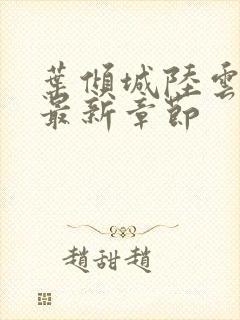 葉傾城陸雲
最新章節
趙甜趙